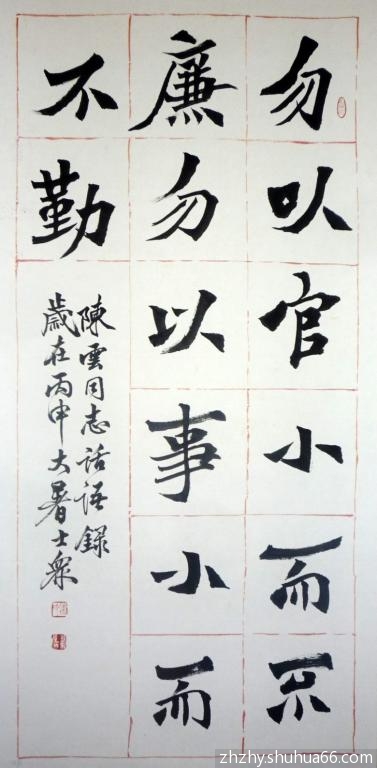 勿以官小而不
廉勿以事小而
不勤
陳雲同志話語錄
歲在丙申大暑士雲
zhzhy.shuhua66.com